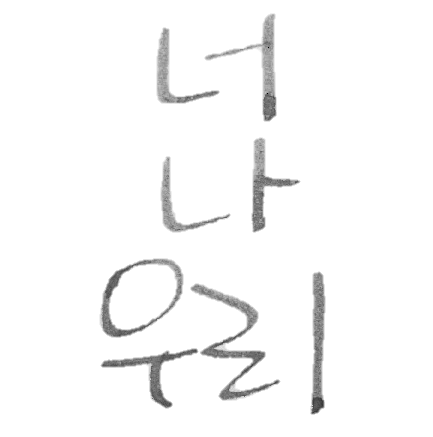 너
나
우리